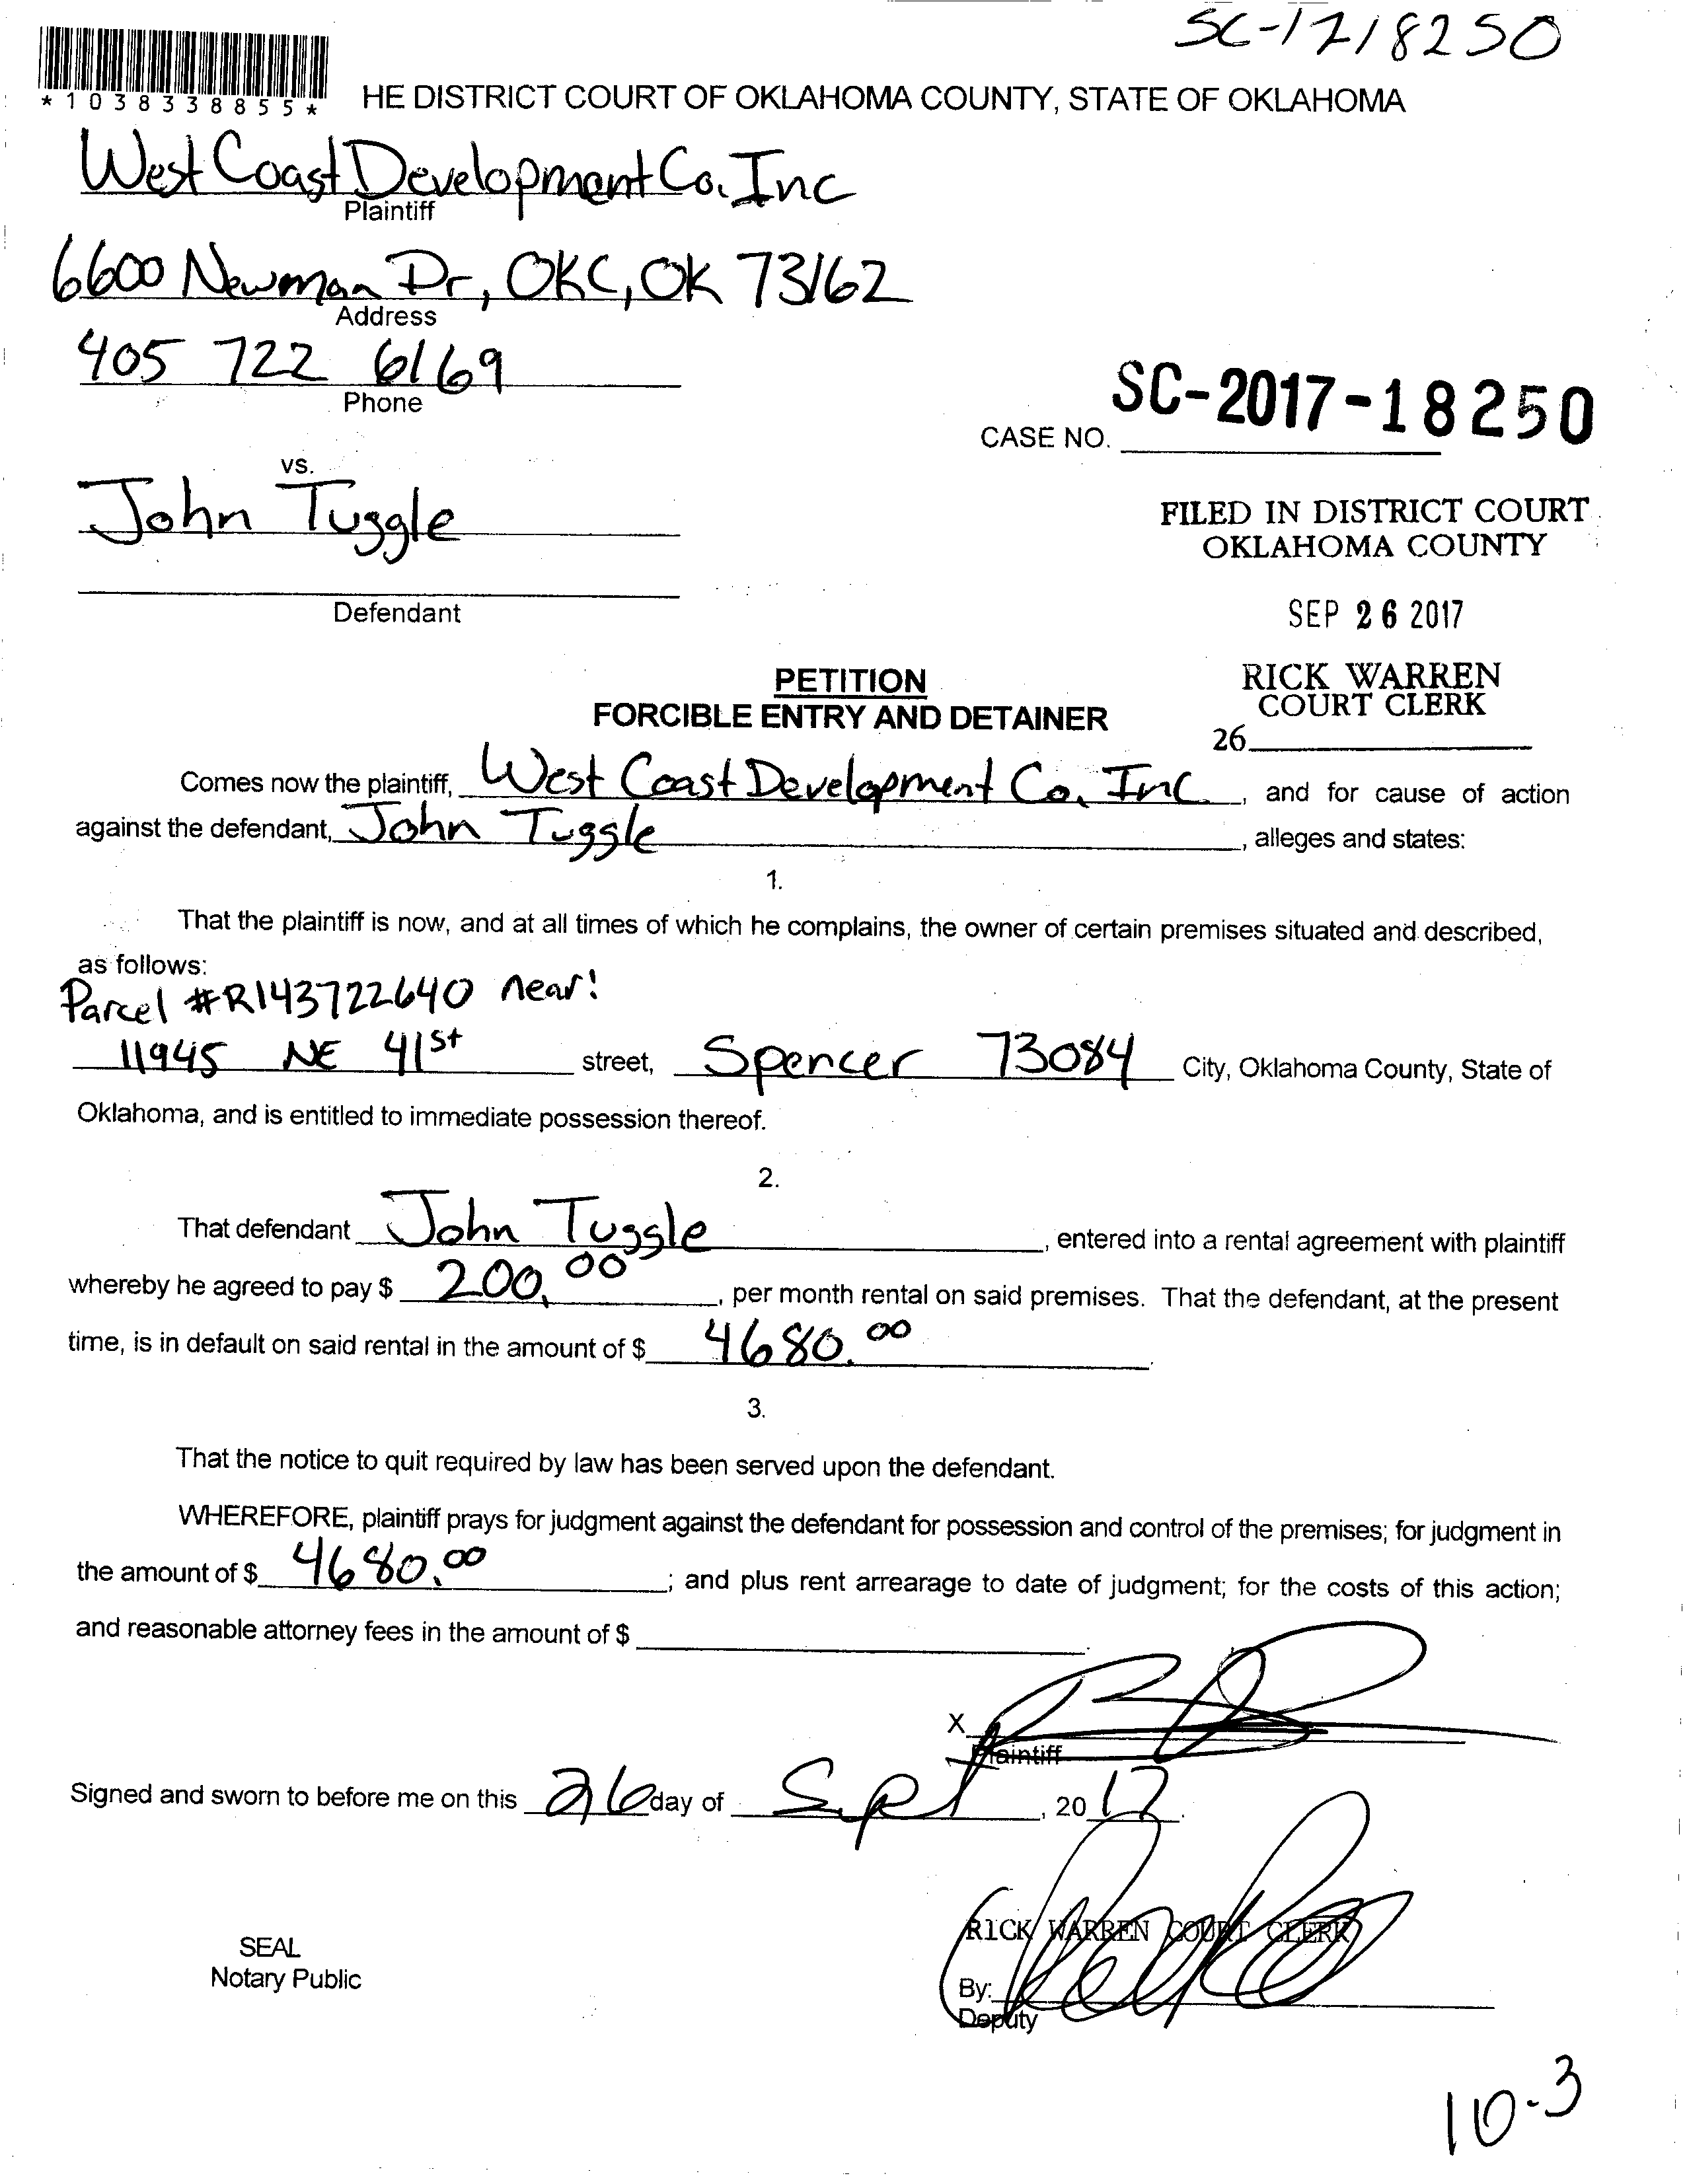 SC-1718250
*1038338855*
HE DISTRICT COURT OF OKLAHOMA COUNTY, STATE OF OKLAHOMA
West Coast Development Co. Inc
Plaintiff
6600 Newman Dr, OKC, OK 73162
Address
405 722 6169
Phone
SC-2017-18250
CASE NO.
vs.
John Tuggle
FILED IN DISTRICT COURT
OKLAHOMA COUNTY
Defendant
SEP 26 2017
PETITION
FORCIBLE ENTRY AND DETAINER
RICK WARREN
COURT CLERK
26
Comes now the plaintiff, West Coast Development Co. Inc., and for cause of action
against the defendant, John Tuggle, alleges and states:
1.
That the plaintiff is now, and at all times of which he complains, the owner of certain premises situated and described,
as follows:
Parcel #R143722640 near!
11945 NE 41st street, Spencer 73084 City, Oklahoma County, State of
Oklahoma, and is entitled to immediate possession thereof.
2.
That defendant John Tuggle, entered into a rental agreement with plaintiff
whereby he agreed to pay $ 200.00, per month rental on said premises. That the defendant, at the present
time, is in default on said rental in the amount of $ 4680.00.
3.
That the notice to quit required by law has been served upon the defendant.
WHEREFORE, plaintiff prays for judgment against the defendant for possession and control of the premises; for judgment in
the amount of $ 4680.00; and plus rent arrearage to date of judgment; for the costs of this action;
and reasonable attorney fees in the amount of $ .
X
Plaintiff
Signed and sworn to before me on this 26 day of Sept, 2017.
RICK WARREN COURT CLERK
SEAL
Notary Public
By:
Deputy
10-3